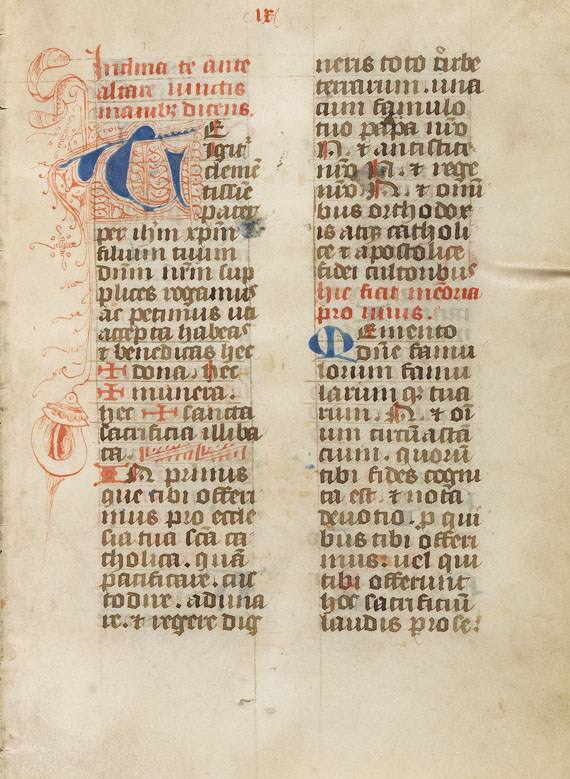 lx
Inclina te ante
altare iunctis
manibꝫ dicens.
TE
Igit᷑
clemē
tissīe
pater
per ihm̄ xp̄m
filium tuum
dn̄m nr̄m sup
plices rogamus
ac petimus uti
accepta habeas
⁊ benedicas hec
✠ dona. hec
✠ munera.
hec ✠ sancta
sacrificia illiba
ta.
IN primis
que tibi offeri
mus pro eccle
sia tua sc̄a ca
tholica. quā
pacificare. cus
todire. aduna
re. ⁊ regere dig
neris toto orbe
terrarum. una
cum famulo
tuo papa nr̄o
N. ⁊ antistite
nr̄o N. ⁊ rege
nr̄o N. ⁊ omi
bus orthodox
is atqꝫ catholi
ce ⁊ apostolice
fidei cultoribus
hic facit memoria
pro uiuis.
Memento
dn̄e famu
lorum famu
larum qꝫ tua
rum. N. ⁊ oī
um circūastā
cium. quorū
tibi fides cogni
ta est. ⁊ nota
deuotio. ꝓ qui
bus tibi offeri
mus. uel qui
tibi offerunt
hoc sacrificiū
laudis pro se.